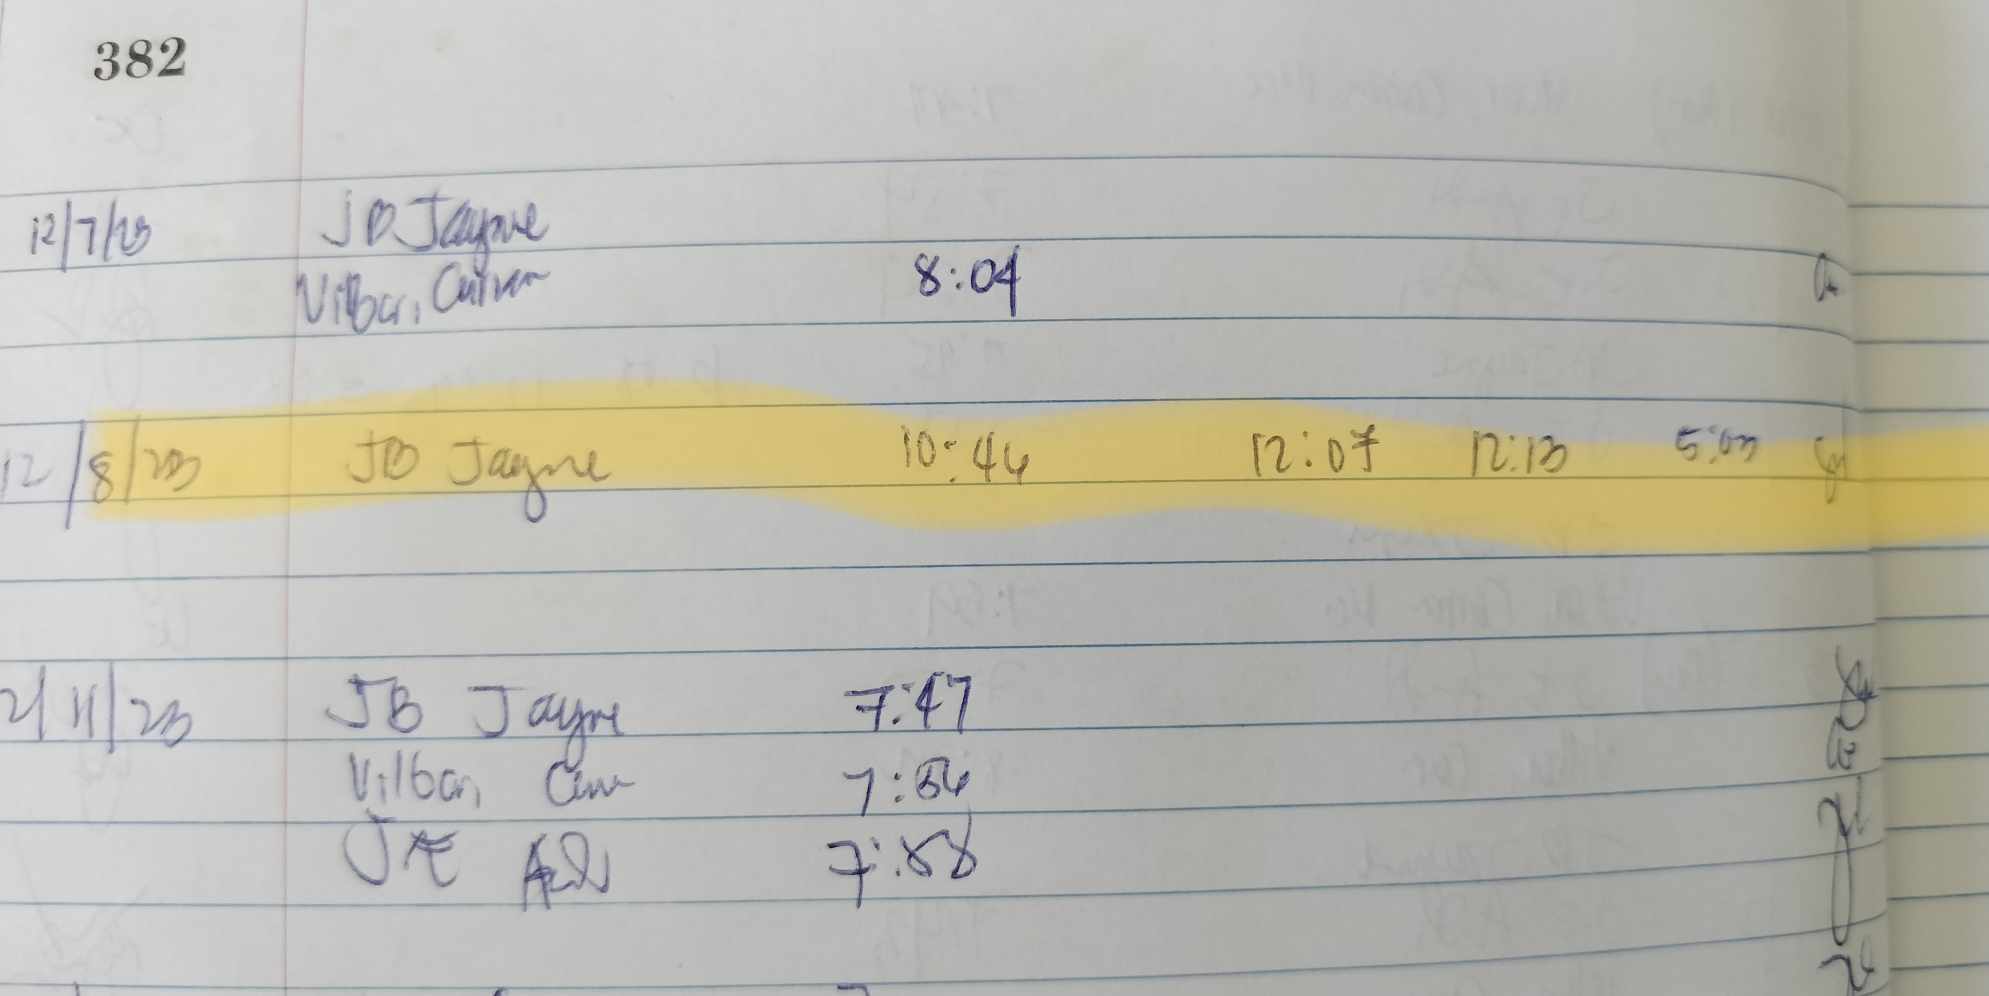 382
12/7/23 JB Jayne
Vilbar, 8:04
12/8/23 JB Jayne 10:46 12:07 12:13 5:03
2/11/23 JB Jayne 7:47
Vilbar, 7:56
JE 7:58